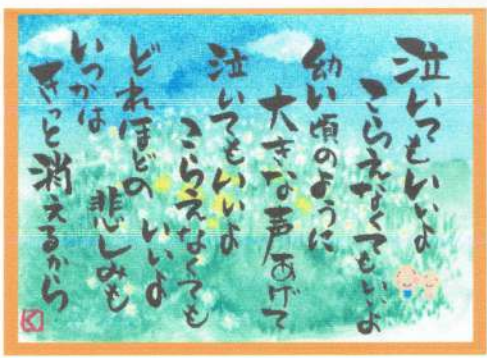 泣いてもいいよ
こらえなくてもいいよ
幼い頃のように
大きな声あげて
泣いてもいいよ
こらえなくても
いいよ
どれほどの
悲しみも
いつかは
きっと消えるから